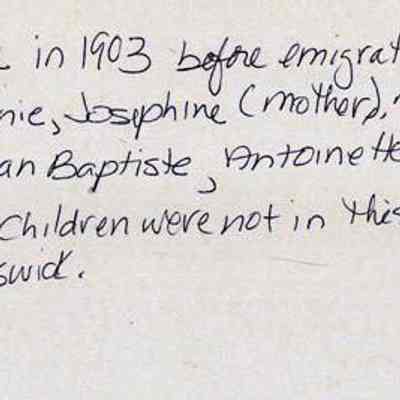 in 1903 before emigrat
nie, Josephine (mother),
an Baptiste, Antoinette
Children were not in this
swick.